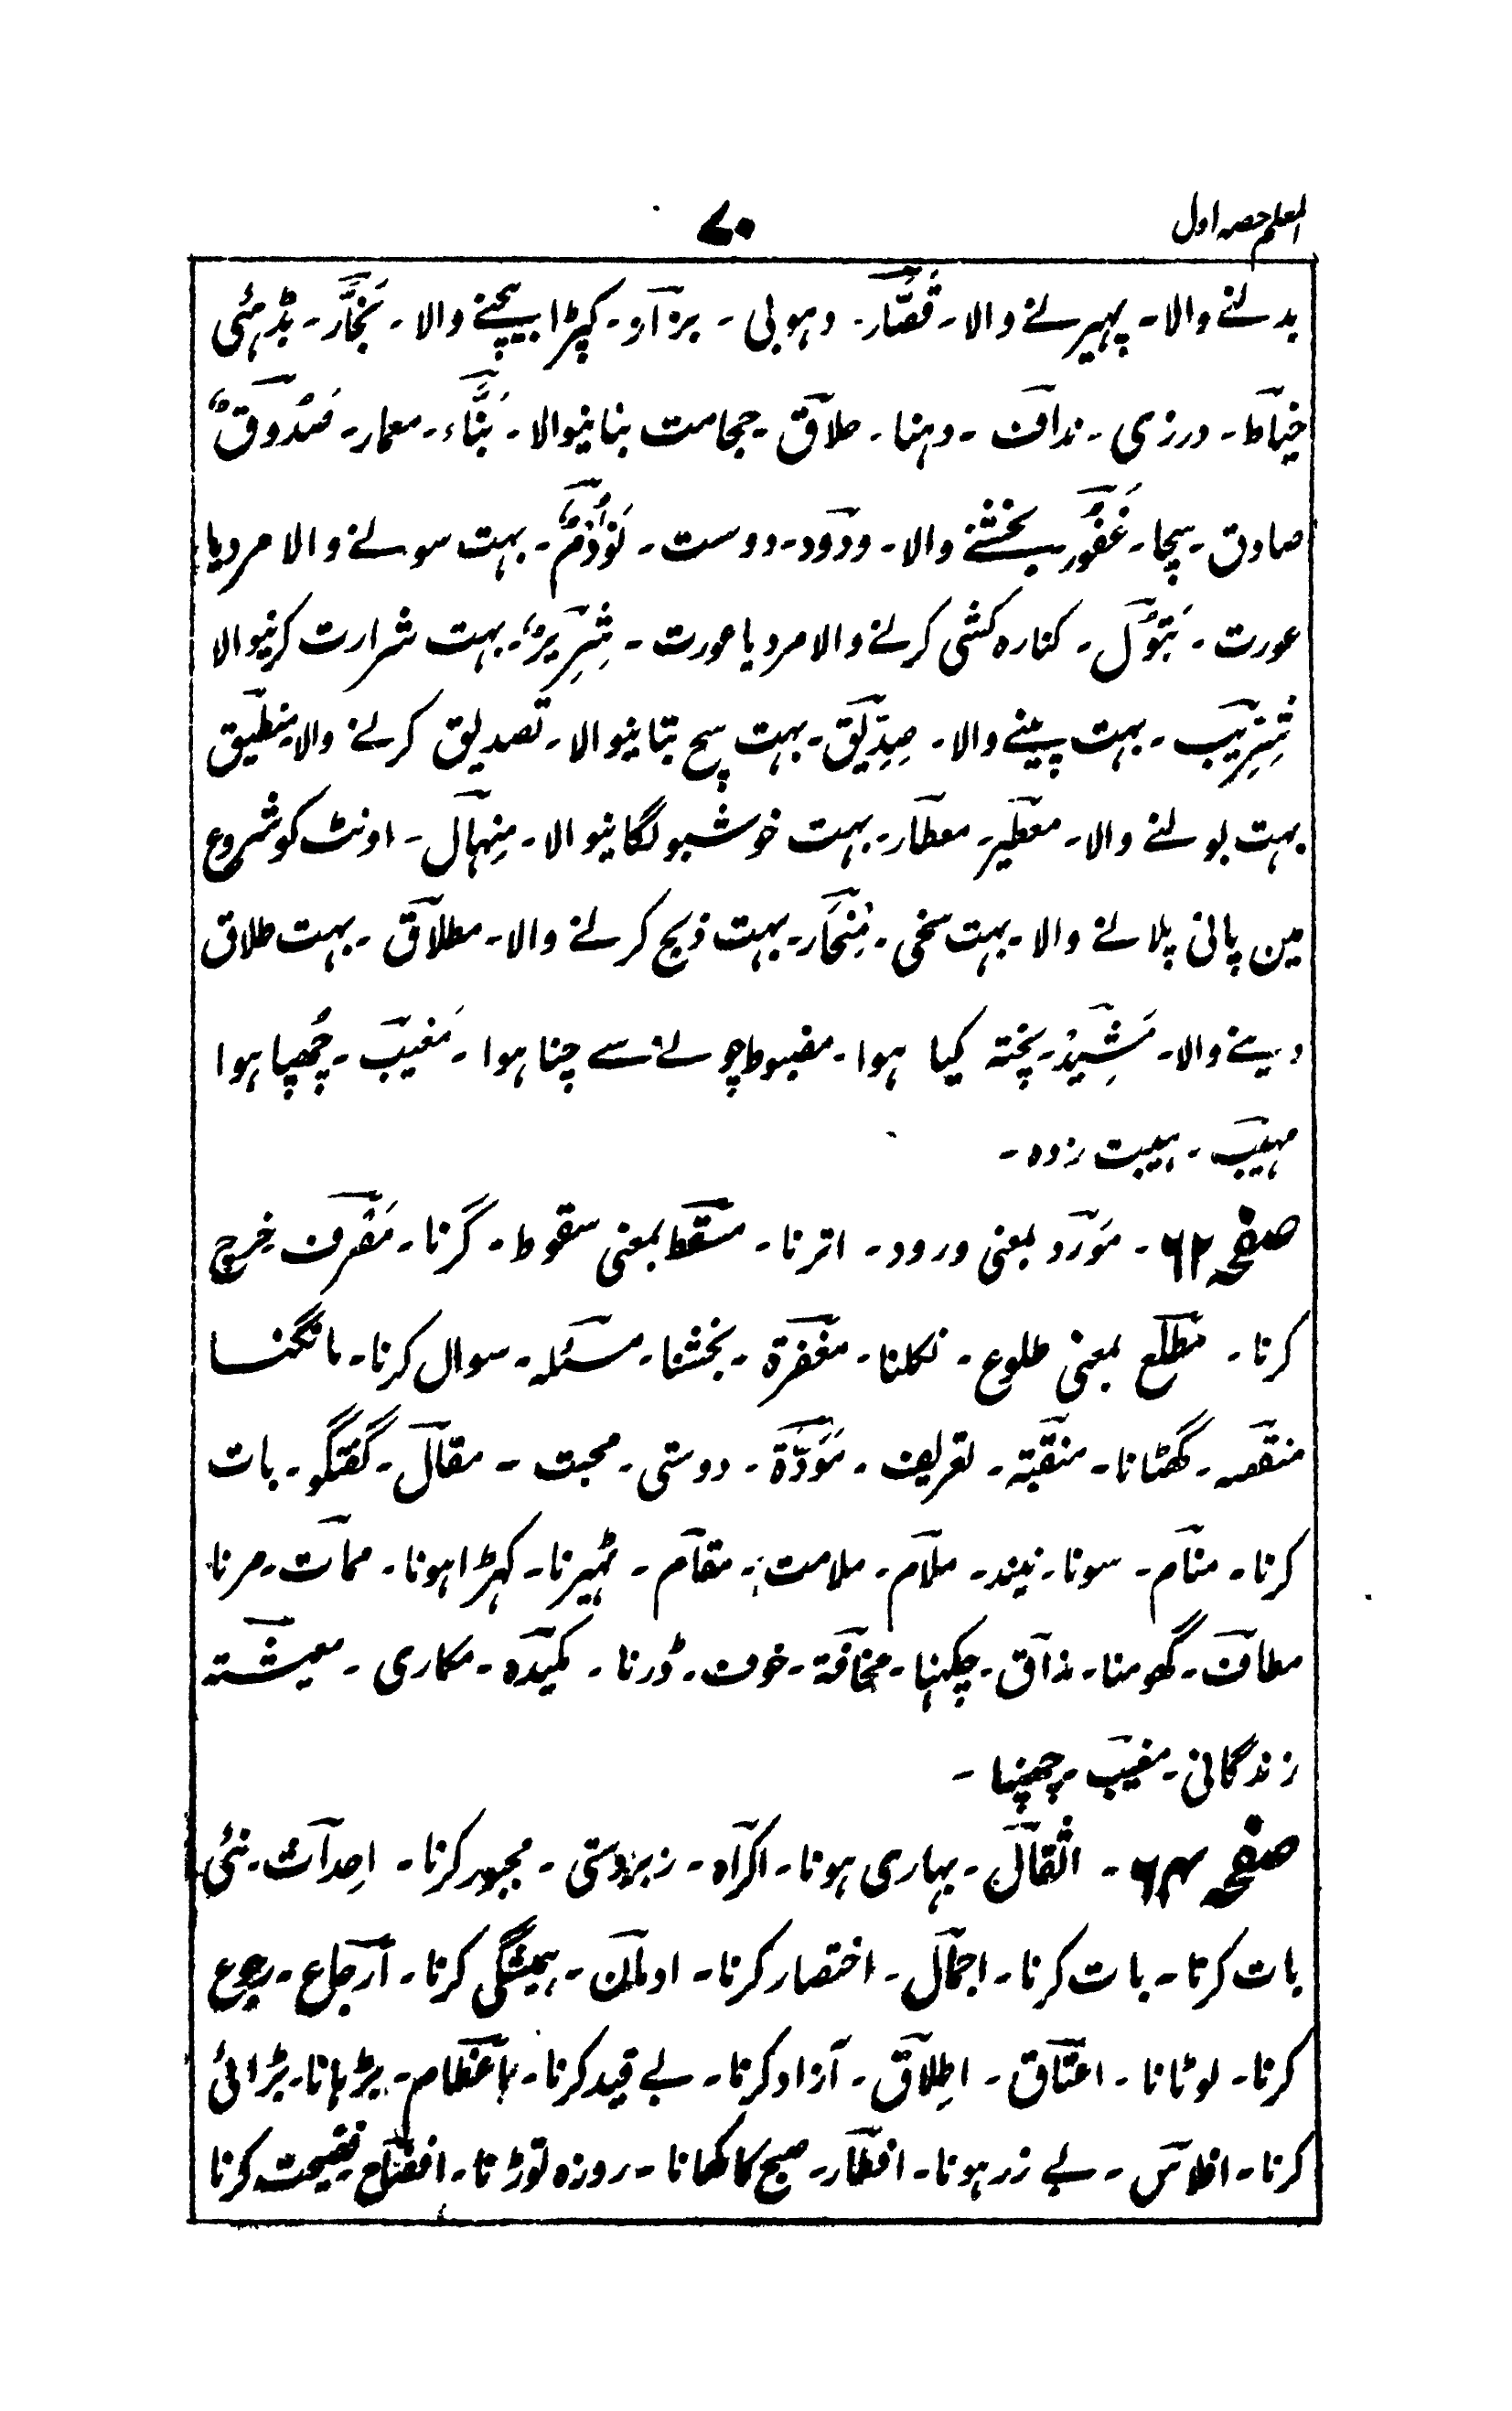 المعلم حصہ اول
۷۰
بدلنے والا۔ پہیرنے والا۔ قَصَّار۔ دہوبی۔ بزآز۔ کپڑا بیچنے والا۔ نَجَّار۔ بڈہئی
خیاط۔ درزی۔ نداف۔ دہنا۔ حلاق۔ حجامت بنانیوالا۔ بَنَّاء۔ معمار۔ صَدُوقٌ
صادق۔ سچا۔ غَفُور۔ بخشنے والا۔ ودود۔ دوست۔ نَؤُومٌ۔ بہت سونے والا مرد یا
عورت۔ بَتُول۔ کنارہ کشی کرنے والا مرد یا عورت۔ شِرِّیرٌ۔ بہت شرارت کرنیوالا
شِرِّیب۔ بہت پینے والا۔ صِدِّیق۔ بہت سچ بتانیوالا۔ تصدیق کرنے والا۔ منطیق
بہت بولنے والا۔ معطیر۔ معطار۔ بہت خوشبو لگانیوالا۔ مِنہال۔ اونٹ کو شروع
مین پانی پلانے والا۔ بہت سخی۔ مِنحَار۔ بہت ذبح کرنے والا۔ مطلاق۔ بہت طلاق
دینے والا۔ مَشِیدٌ۔ پختہ کیا ہوا۔ مضبوط چونے سے چنا ہوا۔ مَغیب۔ چُھپا ہوا
مہیب۔ ہیبت زدہ۔
صفحہ ۶۲۔ مَورد بمعنی ورود۔ اترنا۔ مسقط بمعنی سقوط۔ گرنا۔ مَصرف۔ خرچ
کرنا۔ مطلع بمعنی طلوع۔ نکلنا۔ مغفرة۔ بخشنا۔ مسئلہ۔ سوال کرنا۔ مانگنا
منقصہ۔ گھٹانا۔ منقبۃ۔ تعریف۔ مَوَدَّة۔ دوستی۔ محبت۔ مقال۔ گفتگو۔ بات
کرنا۔ منام۔ سونا۔ نیند۔ ملام۔ ملامت۔ مقام۔ ٹہیرنا۔ کہڑا ہونا۔ ممات۔ مرنا
مطاف۔ گھومنا۔ مذاق۔ چکہنا۔ مخافة۔ خوف۔ ڈرنا۔ مکیدہ۔ مکاری۔ معیشتہ
زندگانی۔ مغیب۔ چھپنا۔
صفحہ ۶۴۔ اثقال۔ بہاری ہونا۔ اکراہ۔ زبردستی۔ مجبور کرنا۔ اِحداث۔ نئی
بات کرنا۔ بات کرنا۔ اجمال۔ اختصار کرنا۔ ادمان۔ ہمیشگی کرنا۔ ارجاع۔ رجوع
کرنا۔ لوٹانا۔ اعتاق۔ اطلاق۔ آزاد کرنا۔ بے قید کرنا۔ اعظام۔ بڑہانا۔ بڑائی
کرنا۔ افلاس۔ بے زر ہونا۔ افطار۔ صبح کا کھانا۔ روزہ توڑنا۔ افضاح۔ فضیحت کرنا